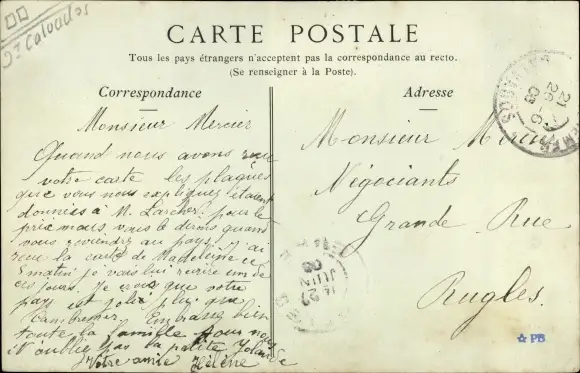 Dt Calvados
CARTE POSTALE
Tous les pays étrangers n'acceptent pas la correspondance au recto.
(Se renseigner à la Poste).
Correspondance
Monsieur Mercier
Quand nous avons reçu
votre carte les plaques
que vous nous expliquez étaient
données à M. Larcher. pour le
prix mais, vais le dirons quand
nous reviendrez au pays. J'ai
reçu la carte de Madeleine ce
matin je vais lui écrire un de
ces jours. Je crois que votre
pays est jolie plus que
Cambremer. Embrasse bien
toute la famille pour nous
N'oublie pas la petite Yolande
Votre amie Hélène
Adresse
Monsieur Mercier
Négociants
Grande Rue
Rugles.
21
26 -6
08
14
29
JUIN
08
PB